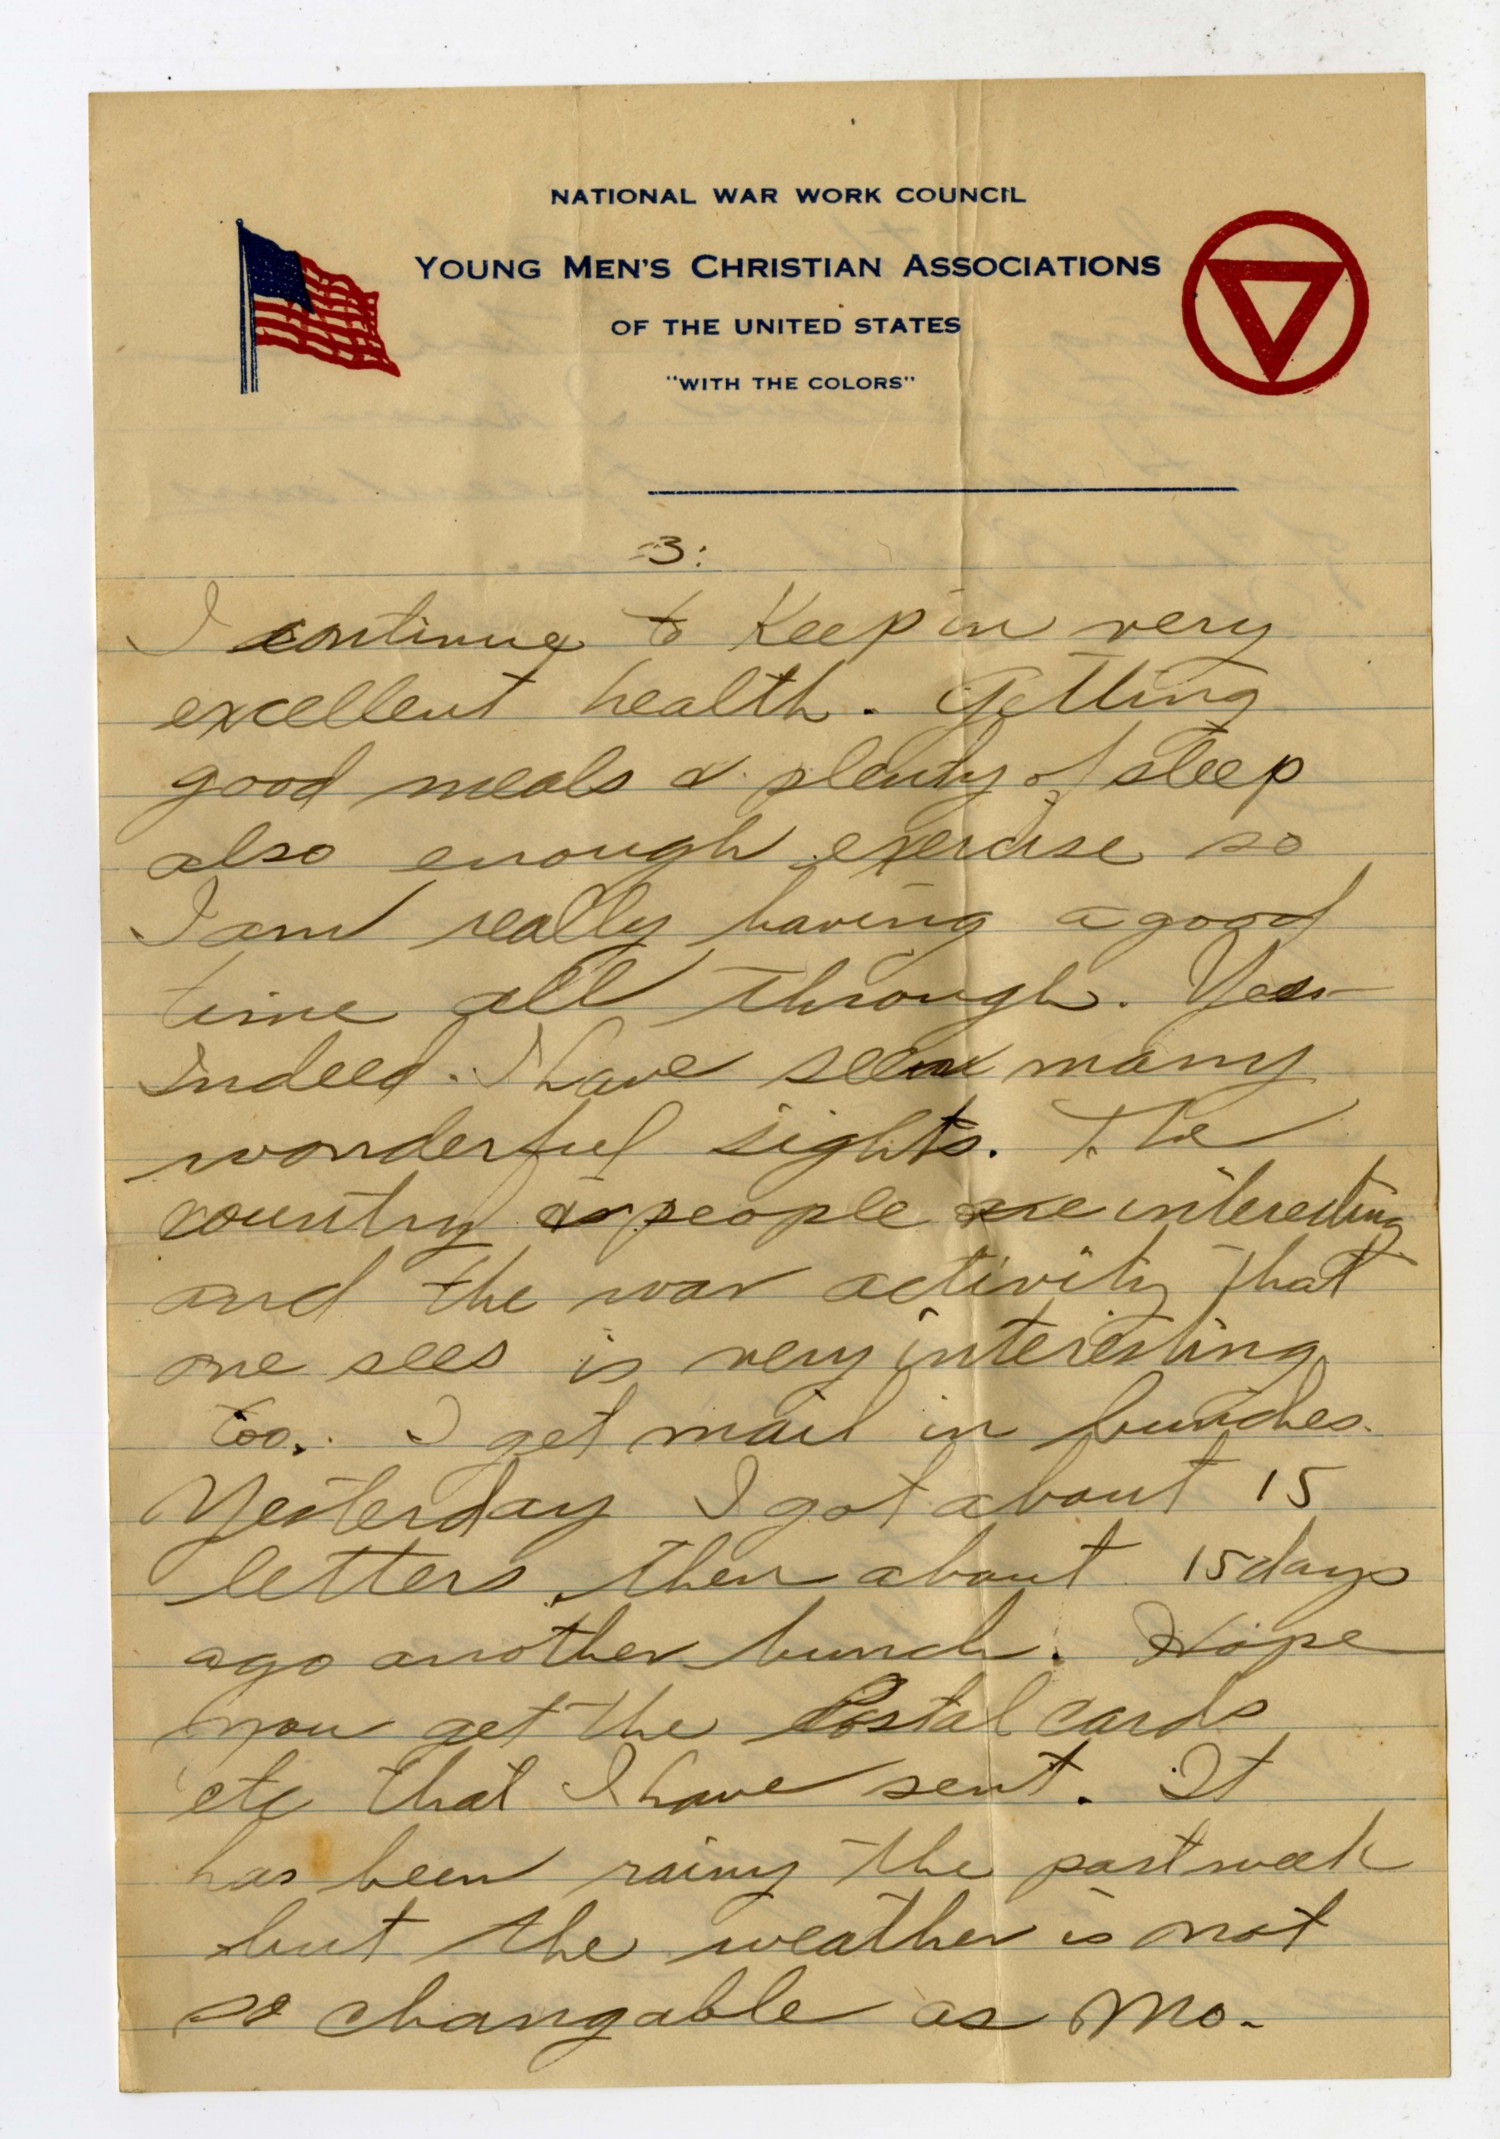 NATIONAL WAR WORK COUNCIL
YOUNG MEN'S CHRISTIAN ASSOCIATIONS
OF THE UNITED STATES
"WITH THE COLORS"
3:
I continue to Keep in very
excellent health. Getting
good meals & plenty of sleep
also enough exercise so
I am really having a good
time all through. Yes
indeed. I have seen many
wonderful sights. The
country & people are interesting
and the war activity that
one sees is very interesting
too. I get mail in bunches.
Yesterday I got about 15
letters, then about 15 days
ago another bunch. Hope
you get the Postal cards
etc that I have sent. It
has been rainy the past week
but the weather is not
so changable as Mo.